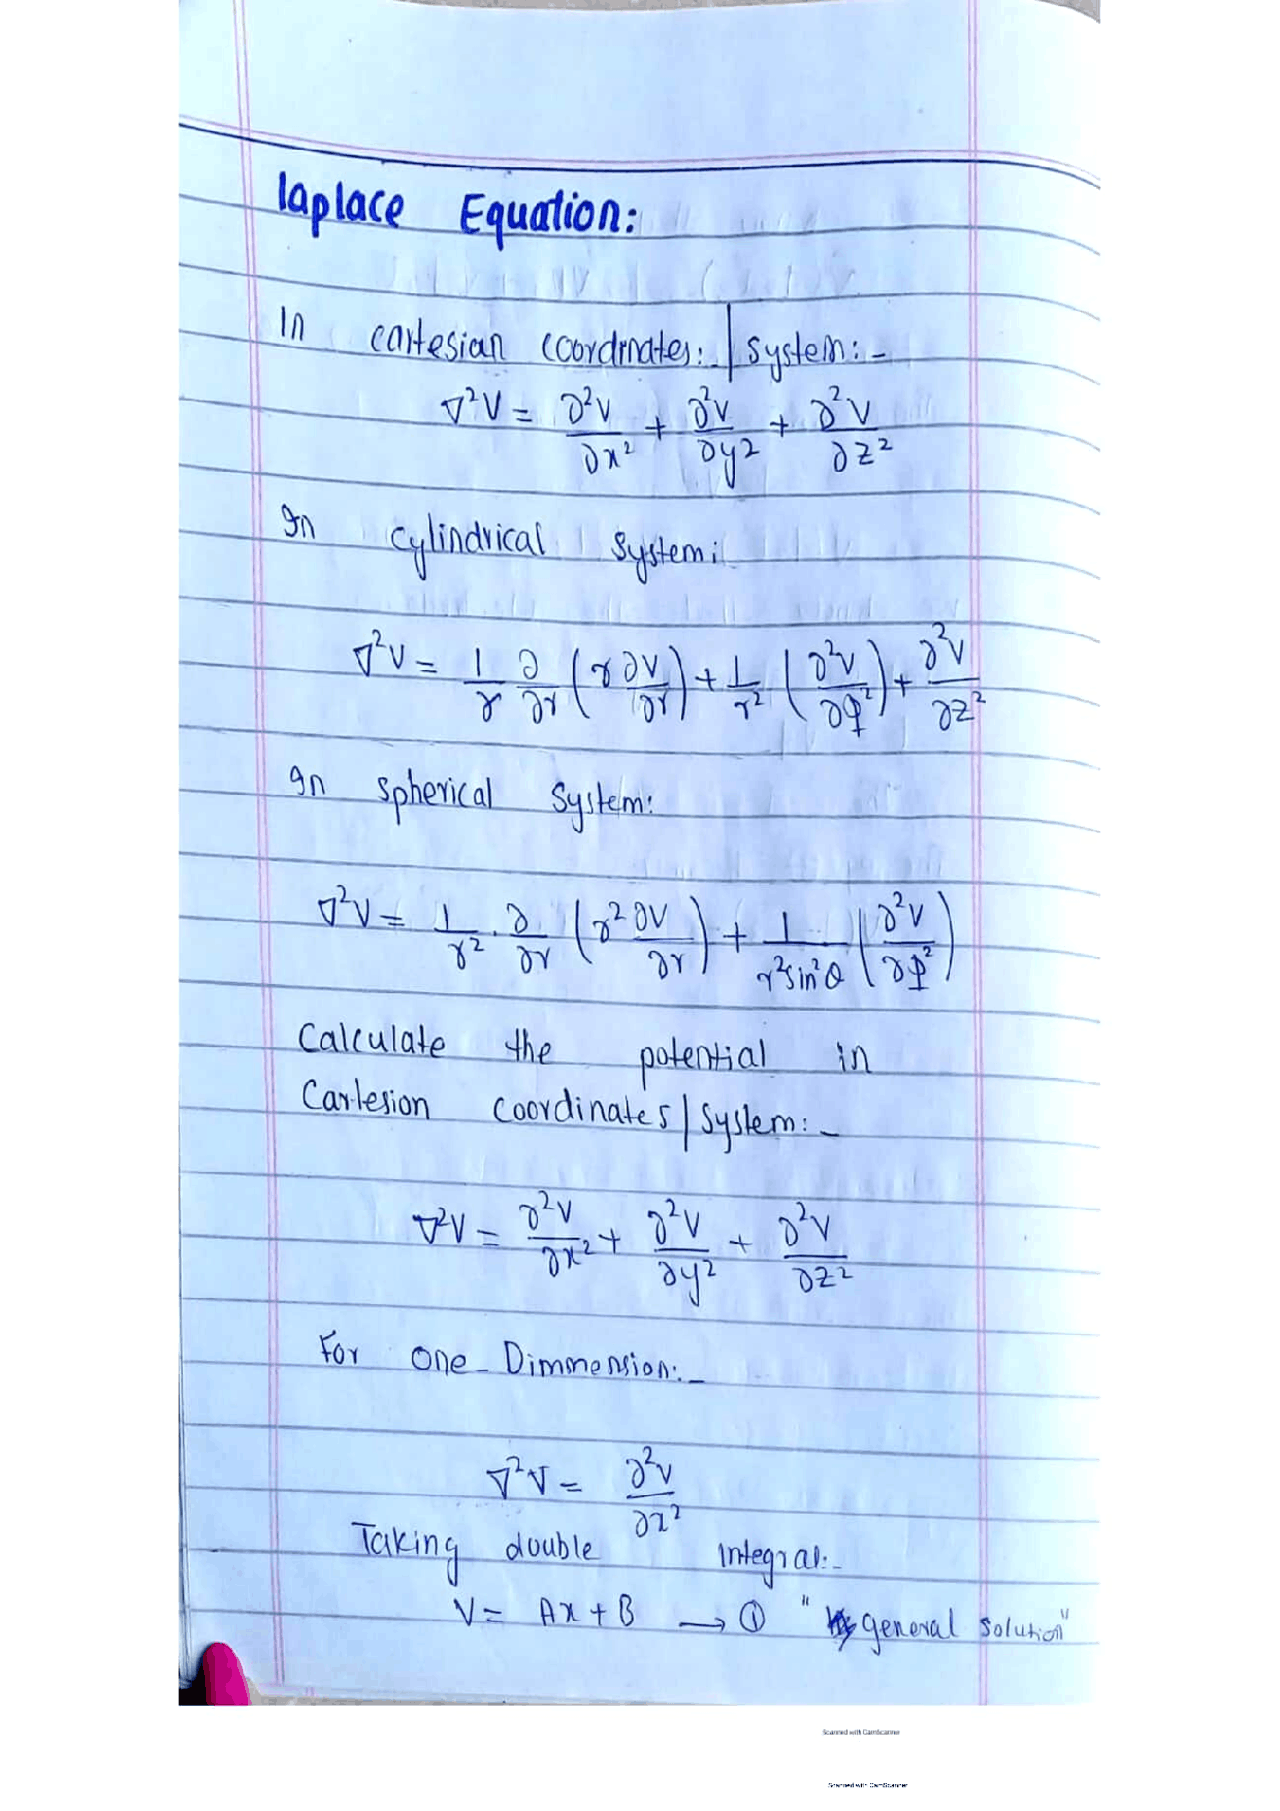 laplace Equation:
In cartesian coordinates: | system: -
∇²V = ∂²V/∂x² + ∂²V/∂y² + ∂²V/∂z²
In cylindrical system:
∇²V = 1/r ∂/∂r (r ∂V/∂r) + 1/r² (∂²V/∂φ²) + ∂²V/∂z²
In spherical system:
∇²V = 1/r² . ∂/∂r (r² ∂V/∂r) + 1/r²sin²θ (∂²V/∂φ²)
Calculate the potential in
Cartesion coordinates | system: -
∇²V = ∂²V/∂x² + ∂²V/∂y² + ∂²V/∂z²
For one Dimmension: -
∇²V = ∂²V/∂x²
Taking double integral: -
V = Ax + B → ① "general solution"
Scanned with CamScanner
Scanned with CamScanner